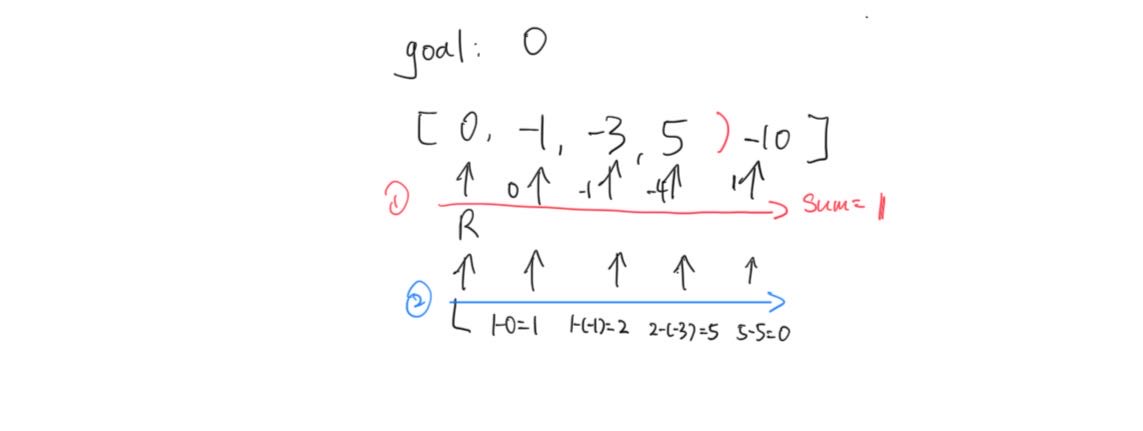 goal: 0
[ 0, -1, -3, 5 ) -10 ]
① 0 -1 -4 1 Sum= 1
R
②
L 1-0=1 1-(-1)=2 2-(-3)=5 5-5=0